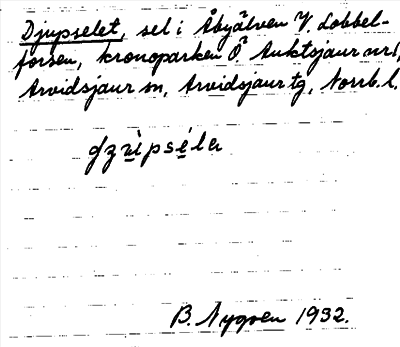 Djupselet, sel i Åbyälven V. Lobbel-
forsen, kronoparken Ö. Auktsjaur nr 1,
Arvidsjaur sn, Arvidsjaur tg, Norrb. l.
B. Nygren 1932.